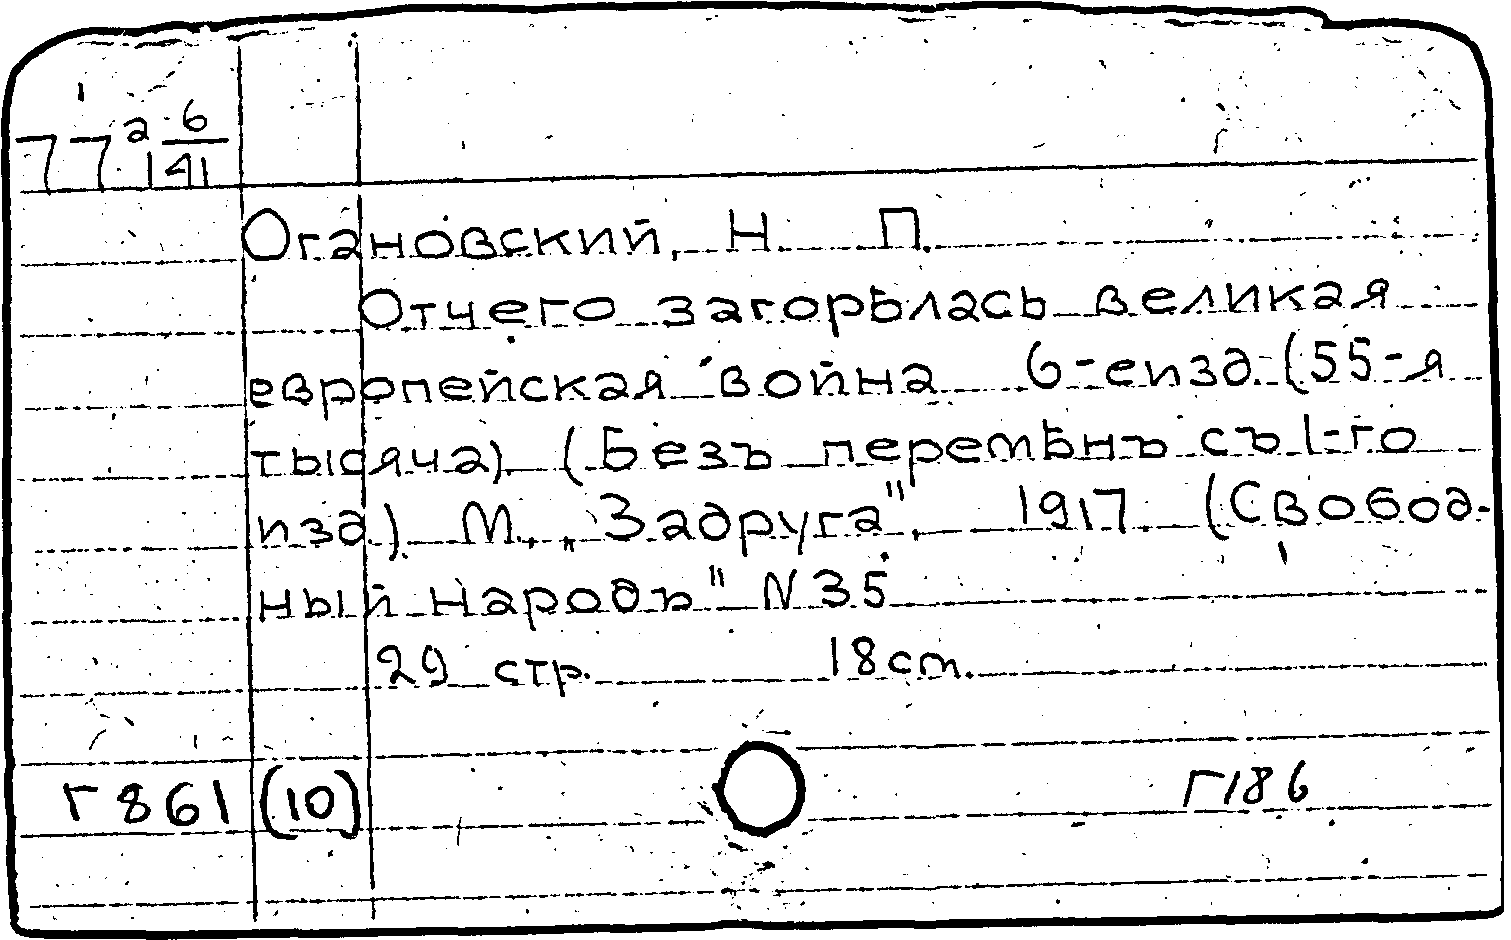 77 2 6/141
Огановский, Н. П.
Отчего загорѣлась великая
европейская война 6-е изд. (55-я
тысяча). (Безъ перемѣнъ съ 1-го
изд.). М., „Задруга", 1917. (Свобод-
ный народъ" N 35
29 стр. 18 cm.
Г 861 (10) Г186